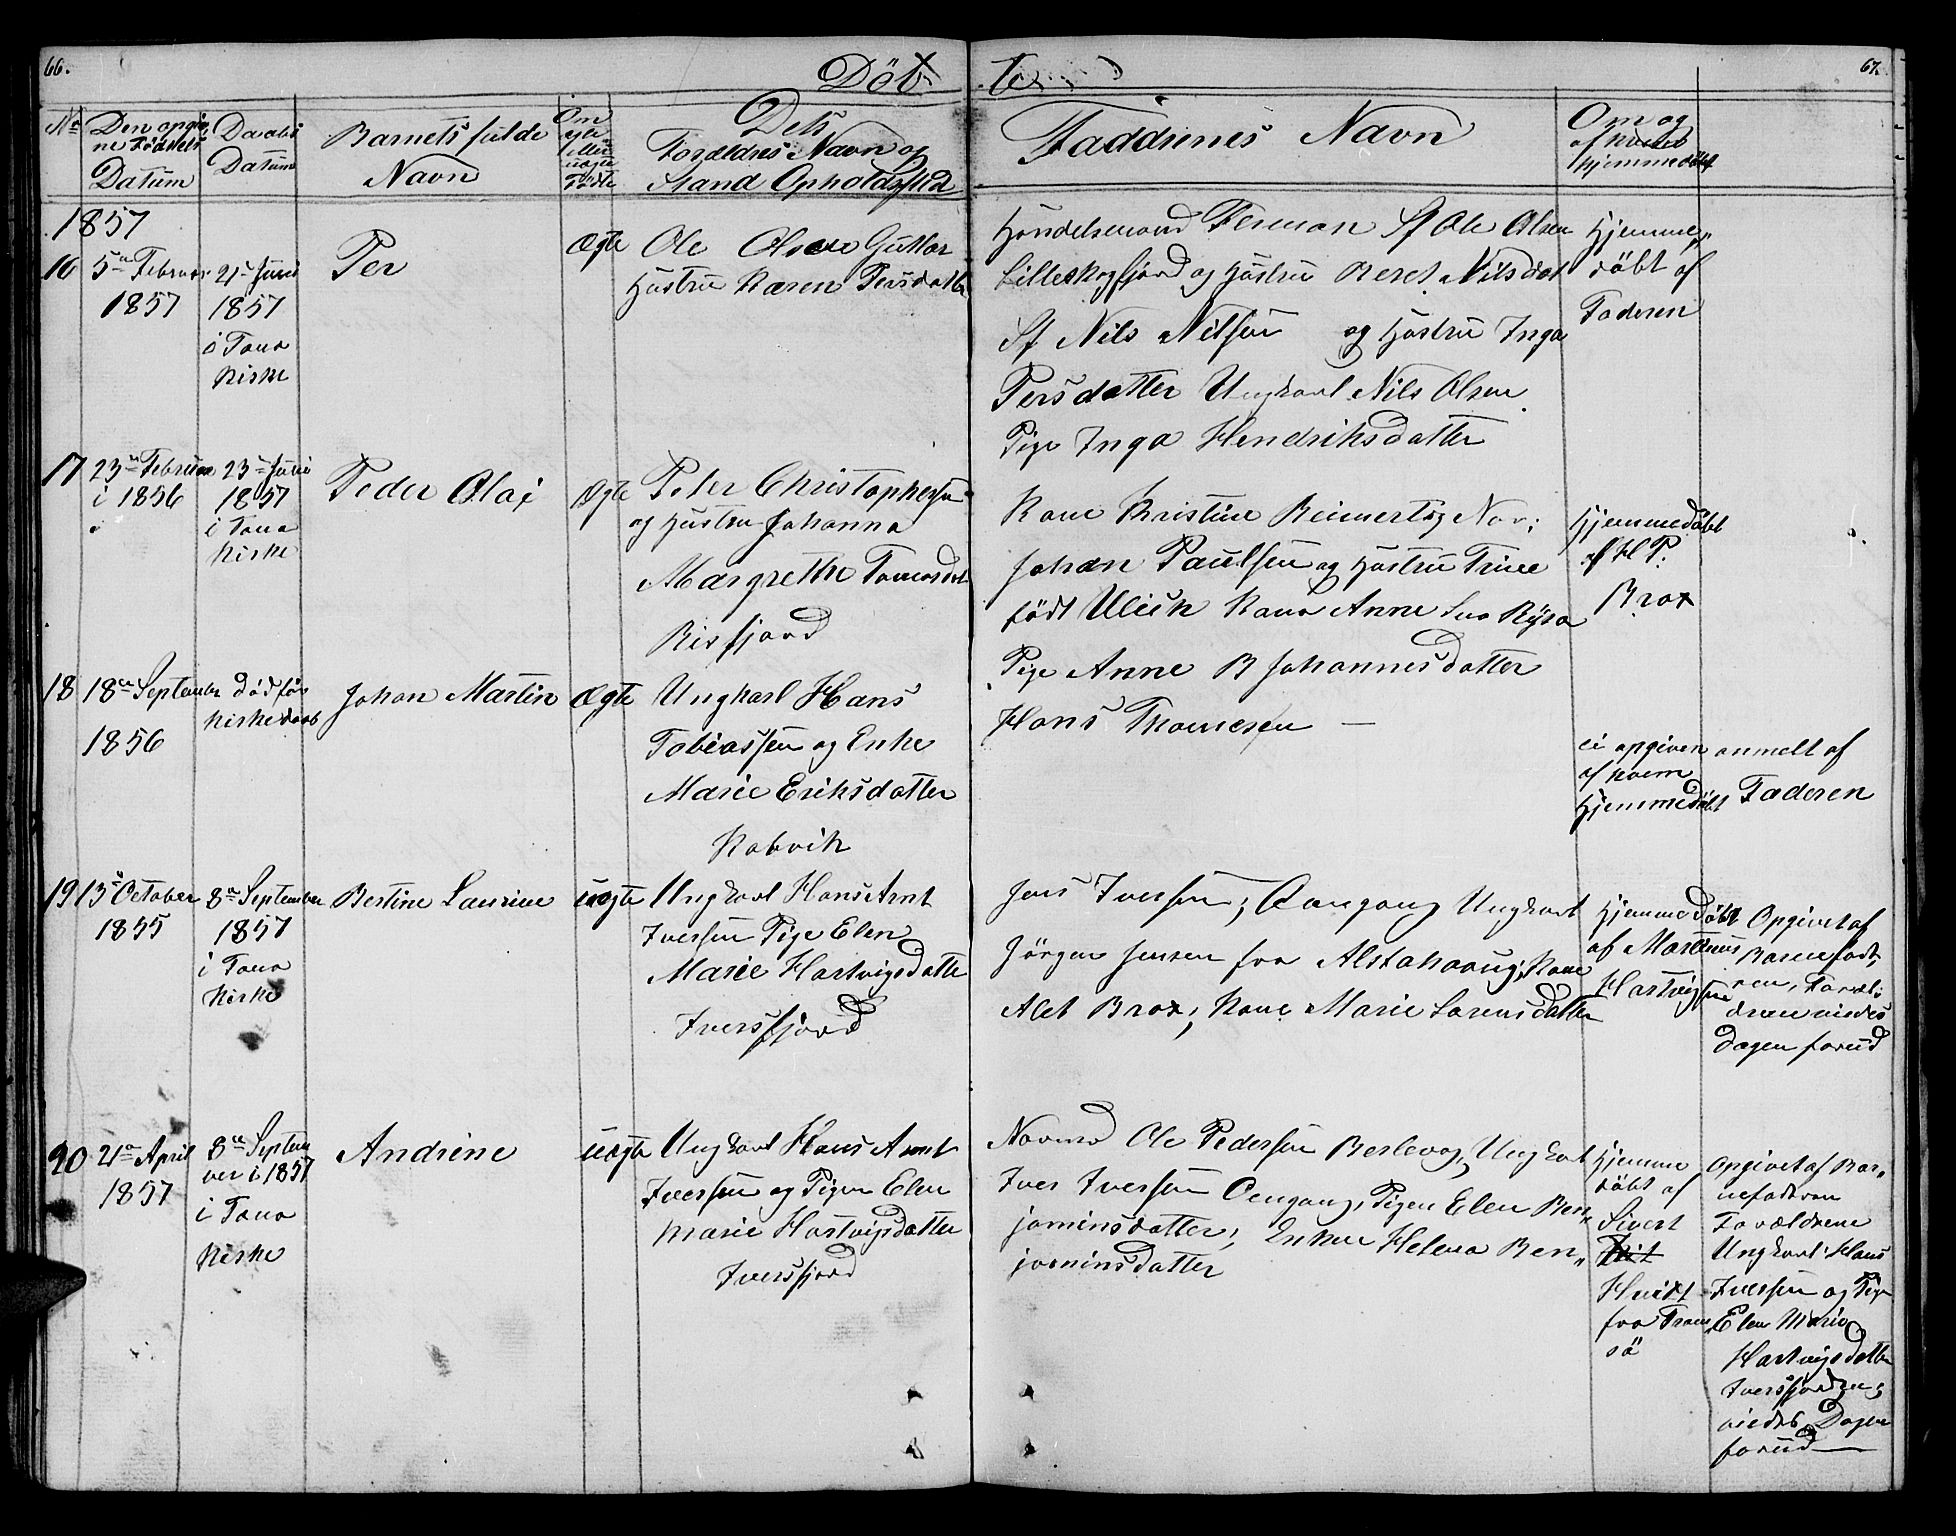 66.
Döb
te
67.
No
Den opgiv
ne Födsels
Datum
Daabs
Datum
Barnets fulde
Navn
Om
ægte
eller
uægte
Födte
Dets
Forældres Navn og
Stand Opholdssted
Faddrenes Navn
Om og
af hvem
hjemmedöbt
1857
16
5te Februar
1857
21de Juni
1857
i Tana
Kirke
Per
Ægte
Ole Olsen Guttor
Hustru Karen Persdatter
Handelsmand Ferman Sf Ole Olsen
Lilleskogfjord og Hustru Beret Nilsdat
Sf Nils Nilsen og Hustru Inga
Persdatter Ungkarl Nils Olsen
Pige Inga Hendriksdatter
Hjemme„
döbt af
Faderen
17
23de Februar
i 1856
23de Juni
1857
i Tana
Kirke
Peder Olai
Ægte
Peter Christophersen
og Hustru Johanna
Margrethe Tomasdat
Risfjord
Kone Kristine Reimertz Nor;
Johan Paulsen og Hustru Trine
födt Ulich Kone Anne Rÿsa
Pige Anne B Johannesdatter
Hans Thomesen —
Hjemmedöbt
af H P.
Brox
18
18de September
1856
död för
Kirkedaab
Johan Martin
Ægte
Ungkarl Hans
Tobiassen og Enke
Marie Eriksdatter
Kobvik
ei opgiven
af hvem
Hjemmedöbt
anmelt af
Faderen
19
13de October
1855
8de September
1857
i Tana
Kirke
Bertine Laurine
uægte
Ungkarl Hans Arnt
Iversen Pige Elen
Marie Hartvigsdatter
Iversfjord
Jens Iversen, Oengang Ungkarl
Jörgen Jensen fra Alstahoug; Kone
Alet Brox; Kone Marie Lorensdatter
Hjemmedöbt
af Martinus
Hartvigsen
Opgivet af
Barnefade
ren, Foræl:
drene viedes
dagen forud
20
21de April
1857
8de Septem
ver i 1857
i Tana
Kirke
Andrine
uægte
Ungkarl Hans Arnt
Iversen og Pigen Elen
Marie Hartvigsdatter
Iversfjord
Normd Ole Pedersen Berlevog, Ungkarl
Iver Iversen Oengang, Pigen Elen Ben„
jaminsdatter; Enken Helena Ben„
jaminsdatter
Hjemme
döbt af
Sivert
Hvidt
fra Trom
sö
Opgivet af Bar„
nefaderen
Forældrene
Ungkarl Hans
Iversen og Pige
Elen Marie
Hartvigsdatter
Iversfjorden;
viedes Dagen
forud